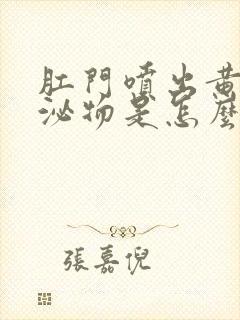 肛門噴出黃
泌物是怎麼
張嘉倪